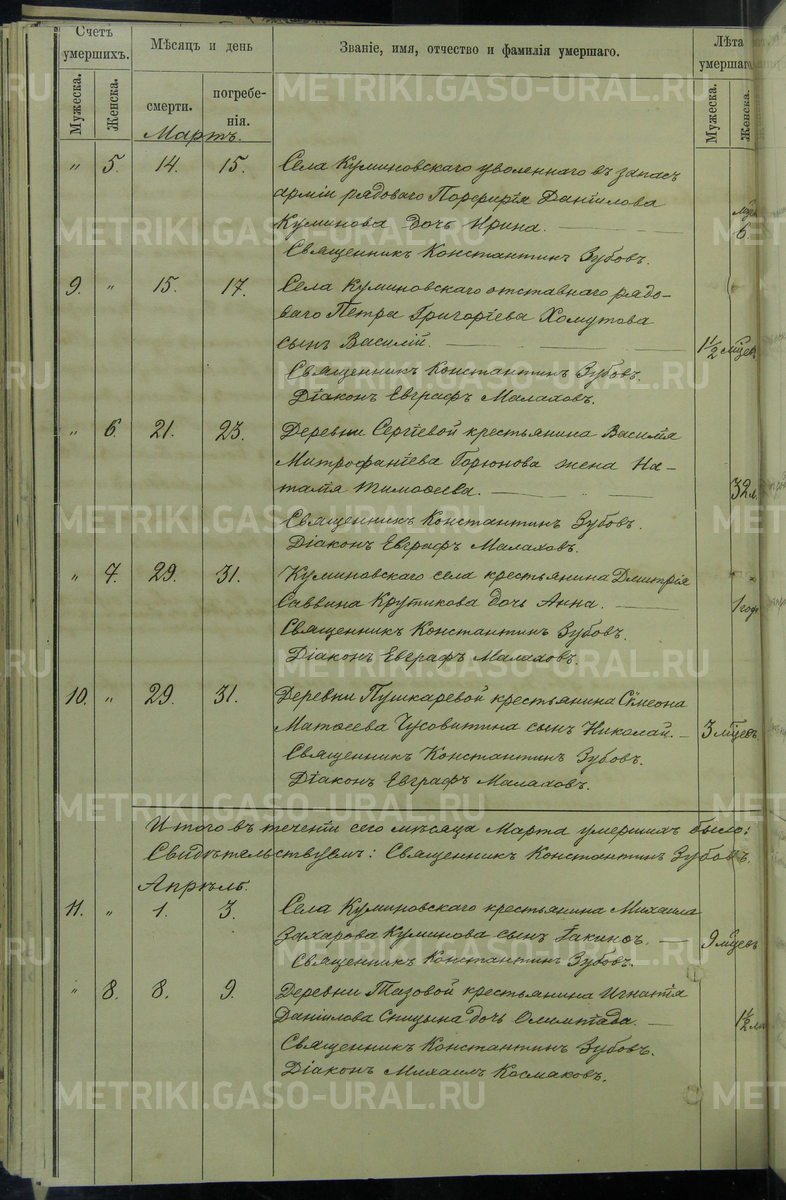 Счетъ умершихъ. Мѣсяцъ и день Званіе, имя, отчество и фамилія умершаго. Лѣта умершаго
Мужеска. Женска. смерти. погребенія. Мужеска. Женска.
Мартъ.
" 5. 14. 15. Села Куминовскаго уволеннаго въ запасъ
арміи рядоваго Порфирія Даніилова
Куминова дочь Ирина. 6.
Священникъ Константинъ Зубовъ.
9. " 15. 17. Села Куминовскаго отставнаго рядо-
ваго Петра Григоріева Хомутова
сынъ Василій. 1½ мѣсец
Священникъ Константинъ Зубовъ.
Діаконъ Евграфъ Малаховъ.
" 6. 21. 23. Деревни Сергіевой крестьянина Василія
Митрофаніева Горюнова жена На-
талія Тимоѳеева. 32 л
Священникъ Константинъ Зубовъ.
Діаконъ Евграфъ Малаховъ.
" 7. 29. 31. Куминовскаго села крестьянина Дмитрія
Саввина Крутикова дочь Анна. 1 год
Священникъ Константинъ Зубовъ.
Діаконъ Евграфъ Малаховъ.
10. " 29. 31. Деревни Пушкаревой крестьянина Сѵмеона
Матѳеева Чусовитина сынъ Николай. 3 мѣсец
Священникъ Константинъ Зубовъ.
Діаконъ Евграфъ Малаховъ.
Итого въ теченіи сего мѣсяца Марта умершихъ было:
Свидѣтельствуемъ: Священникъ Константинъ Зубовъ.
Апрѣль.
11. " 1. 3. Села Куминовскаго крестьянина Михаила
Захарова Куминова сынъ Іакинѳъ. 9 мѣсец
Священникъ Константинъ Зубовъ.
" 8. 8. 9. Деревни Тазовой крестьянина Игнатія
Даніилова Спицына дочь Олимпіада. 1½
Священникъ Константинъ Зубовъ.
Діаконъ Михаилъ Космаковъ.
METRIKI.GASO-URAL.RU